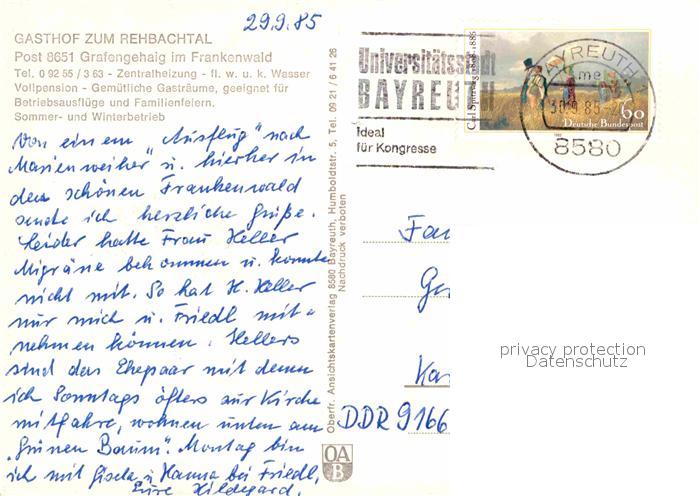 29.9.85
GASTHOF ZUM REHBACHTAL
Post 8651 Grafengehaig im Frankenwald
Tel. 0 92 55 / 3 63 - Zentralheizung - fl. w. u. k. Wasser
Vollpension - Gemütliche Gasträume, geeignet für
Betriebsausflüge und Familienfeiern.
Sommer- und Winterbetrieb
Von einem "Ausflug" nach
Marienweiher u. hierher in
den schönen Frankenwald
sende ich herzliche Grüße.
Leider hatte Frau Heller
Migräne bekommen u. konnte
nicht mit. So hat H. Heller
nur mich u. Friedl mit-
nehmen können. Hellers
sind das Ehepaar mit denen
ich Sonntags öfters zur Kirche
mitfahre, wohnen unten am
"Grünen Baum". Montag bin
ich mit Gisela u. Hanna bei Friedl.
Eure Hildegard.
Oberfr. Ansichtskartenverlag 8580 Bayreuth, Humboldtstr. 5, Tel. 09 21 / 6 41 26
Nachdruck verboten
OA
B
Universitätsstadt
BAYREUTH
Ideal
für Kongresse
Carl Spitzweg 1808-1885
60
Deutsche Bundespost
BAYREUTH
me
30.9.85
8580
Fam
Ge
Kar
DDR 9166
privacy protection
Datenschutz